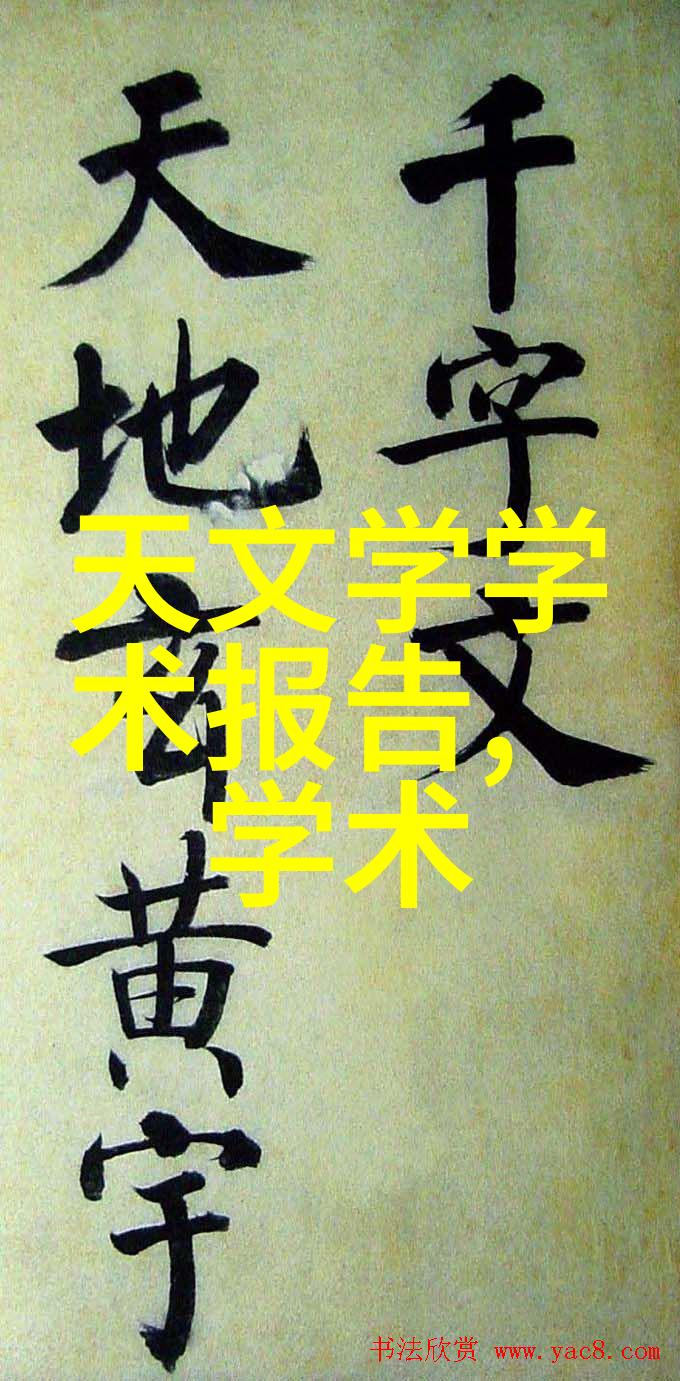 千字文
天地黄宇
天文学学
术报告，
学术
书法欣赏 www.yac8.com